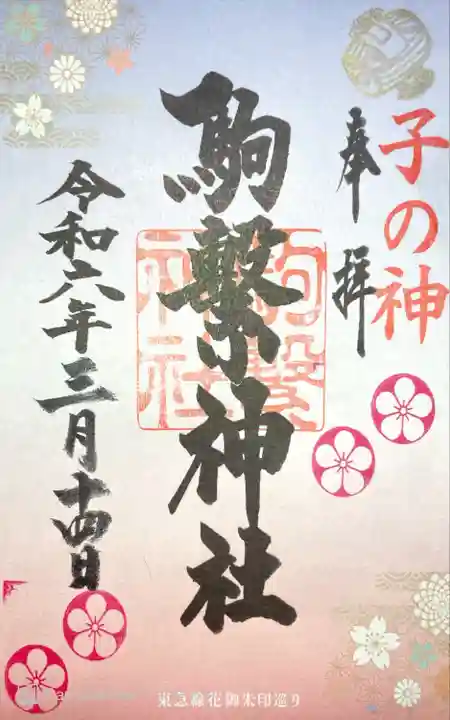 子の神
奉拝
駒繋神社
駒繋
神社
令和六年三月十四日
東急線花御朱印巡り